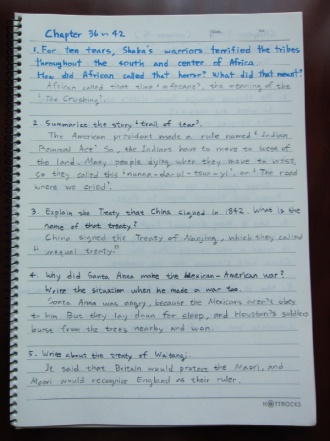 Chapter 36 ~ 42
1. For ten tears, Shaka's warriors terrified the tribes
throughout the south and center of Africa.
How did African called that horror? What did that meant?
African called that time 'mfecane', the meaning of the
'The Crushing'.
2. Summarize the story 'trail of tear'.
The American president made a rule named 'Indian
Removal Act' So, the Indians have to move to west of
the land. Many people dying when they move to west,
so they called this 'nunna-da-ul-tsun-yi', or 'The road
where we cried'.
3. Explain the Treaty that China signed in 1842. What is the
name of that treaty?
China signed the Treaty of Nanjing, which they called
" unequal treaty."
4. Why did Santa Anna make the Mexican-American war?
Write the situation when he made a war too.
Santa Anna was angry, because the Mexicans aren't obey
to him. But they lay down for sleep, and Houston's soldiers
burse from the trees nearby and won.
5. Write about the treaty of Waitangi.
It said that Britain would protect the Maori, and
Maori would recognise England as their ruler.
HOTTRACKS